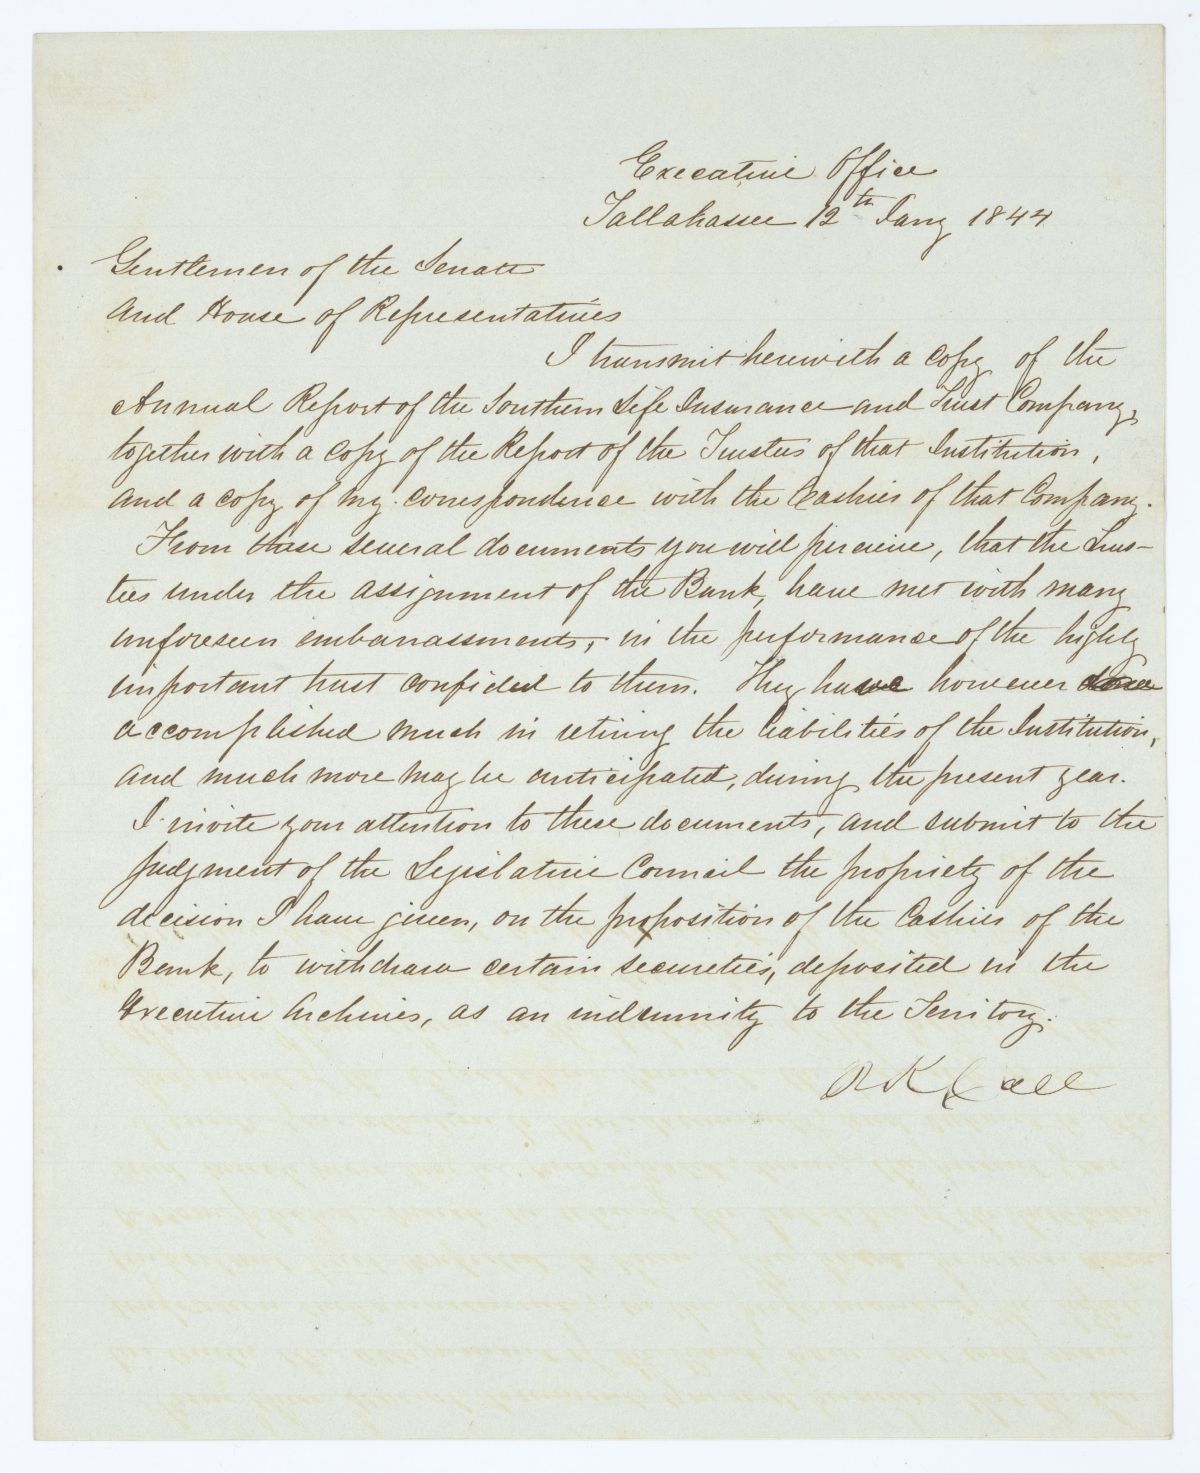 Executive Office
Tallahassee 12th Jany 1844
Gentlemen of the Senate
and House of Representatives
I transmit herewith a copy of the
Annual Report of the Southern Life Insurance and Trust Company,
together with a copy of the Report of the Trustees of that Institution,
and a copy of my correspondence with the Cashier of that Company.
From these several documents you will perceive, that the Trus-
tees under the assignment of the Bank, have met with many
unforeseen embarrassments, in the performance of the highly
important trust confided to them. They have however
accomplished much in retiring the liabilities of the Institution,
and much more may be anticipated, during the present year.
I invite your attention to these documents, and submit to the
judgment of the Legislative Council the propriety of the
decision I have given, on the proposition of the Cashier of the
Bank, to withdraw certain secureties, deposited in the
Executive Archives, as an indemnity to the Territory.
R K Call